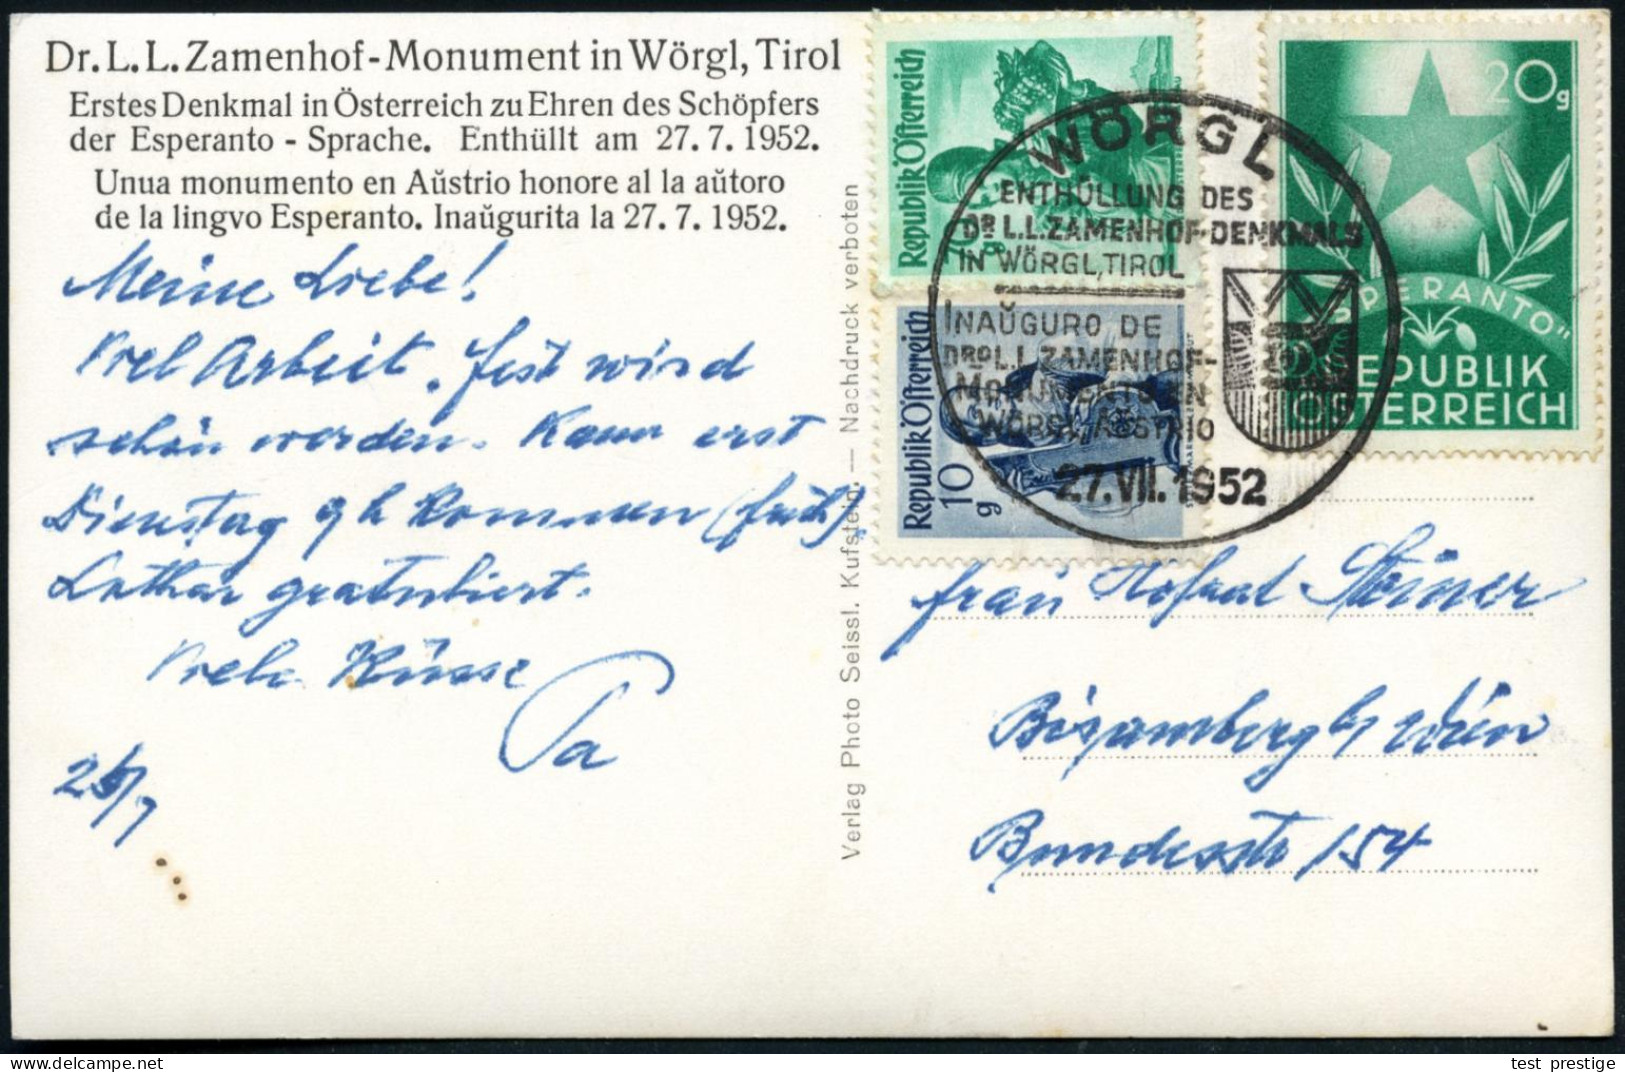 Dr. L. L. Zamenhof-Monument in Wörgl, Tirol
Erstes Denkmal in Österreich zu Ehren des Schöpfers
der Esperanto - Sprache. Enthüllt am 27. 7. 1952.
Unua monumento en Aŭstrio honore al la aŭtoro
de la lingvo Esperanto. Inaŭgurita la 27. 7. 1952.
Meine Liebe!
Viel Arbeit. Fest wird
schön werden. Kann erst
Dienstag 9 h kommen (früh).
Lothar gratuliert.
Viele Küsse
Pa
Verlag Photo Seissl. Kufstein. — Nachdruck verboten
Republik Österreich
Republik Österreich
10 g
20 g
ESPERANTO"
REPUBLIK
ÖSTERREICH
WÖRGL
ENTHÜLLUNG DES
DR L.L. ZAMENHOF-DENKMALS
IN WÖRGL, TIROL
INAŬGURO DE
DRO L.L. ZAMENHOF-
MONUMENTO EN
WÖRGL, AŬSTRIO
27. VII. 1952
Frau Hofrat Steiner
Bisamberg b/ Wien
Bundesstr 154
test_prestige